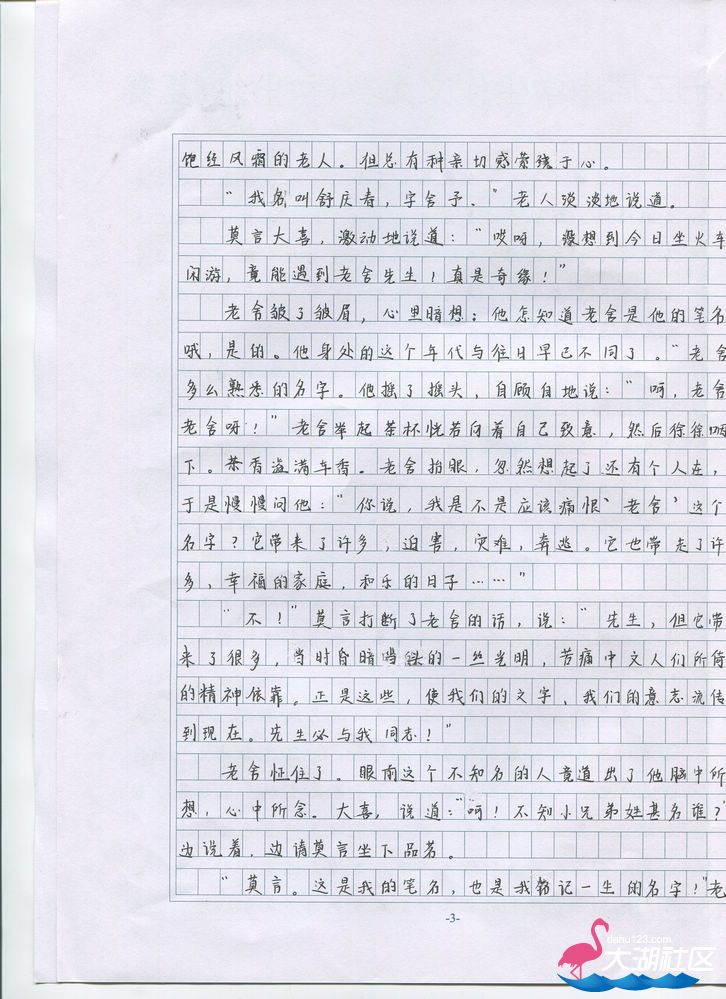 饱经风霜的老人。但总有种亲切感萦绕于心。
“我名叫舒庆春，字舍予、”老人淡淡地说道。
莫言大喜，激动地说道：“哎呀，没想到今日坐火车
闲游，竟能遇到老舍先生！真是奇缘！”
老舍皱了皱眉，心里暗想：他怎知道老舍是他的笔名
哦，是的。他身处的这个年代与往日早已不同了。“老舍
多么熟悉的名字。他摇了摇头，自顾自地说：“呵，老舍
老舍呀！”老舍举起茶杯恍若向着自己致意，然后徐徐咽
下。茶香溢满车香。老舍抬眼，忽然想起了还有个人在，
于是慢慢问他：“你说，我是不是应该痛恨‘老舍’这个
名字？它带来了许多，迫害，灾难，奔逃。它也带走了许
多，幸福的家庭，和乐的日子……”
“不！”莫言打断了老舍的话，说：“先生，但它带
来了很多，当时昏暗当头的一丝光明，苦痛中文人们所倚
的精神依靠。正是这些，使我们的文字、我们的意志流传
到现在。先生必与我同志！”
老舍怔住了。眼前这个不知名的人竟道出了他脑中所
想，心中所念。大喜，说道：“呵！不知小兄弟姓甚名谁？
边说着，边请莫言坐下品茗。
“莫言。这是我的笔名，也是我铭记一生的名字！”老
-3-
dahu123.com
大湖社区